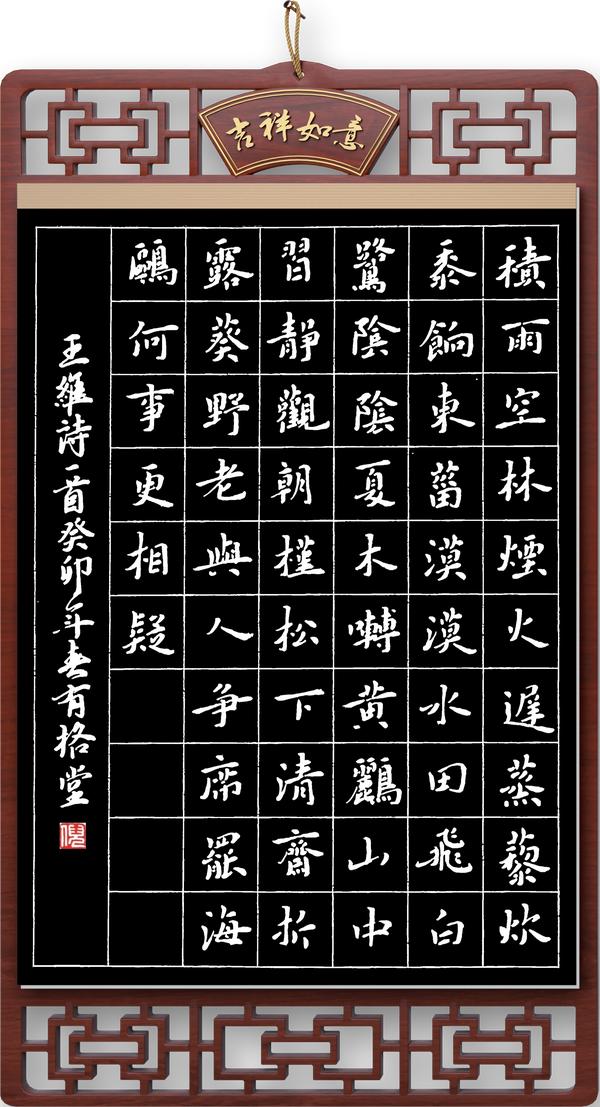 吉祥如意
積雨空林煙火遲蒸藜炊
黍餉東菑漠漠水田飛白
鷺陰陰夏木囀黃鸝山中
習靜觀朝槿松下清齋折
露葵野老與人爭席罷海
鷗何事更相疑
王維詩一首癸卯年春有格堂